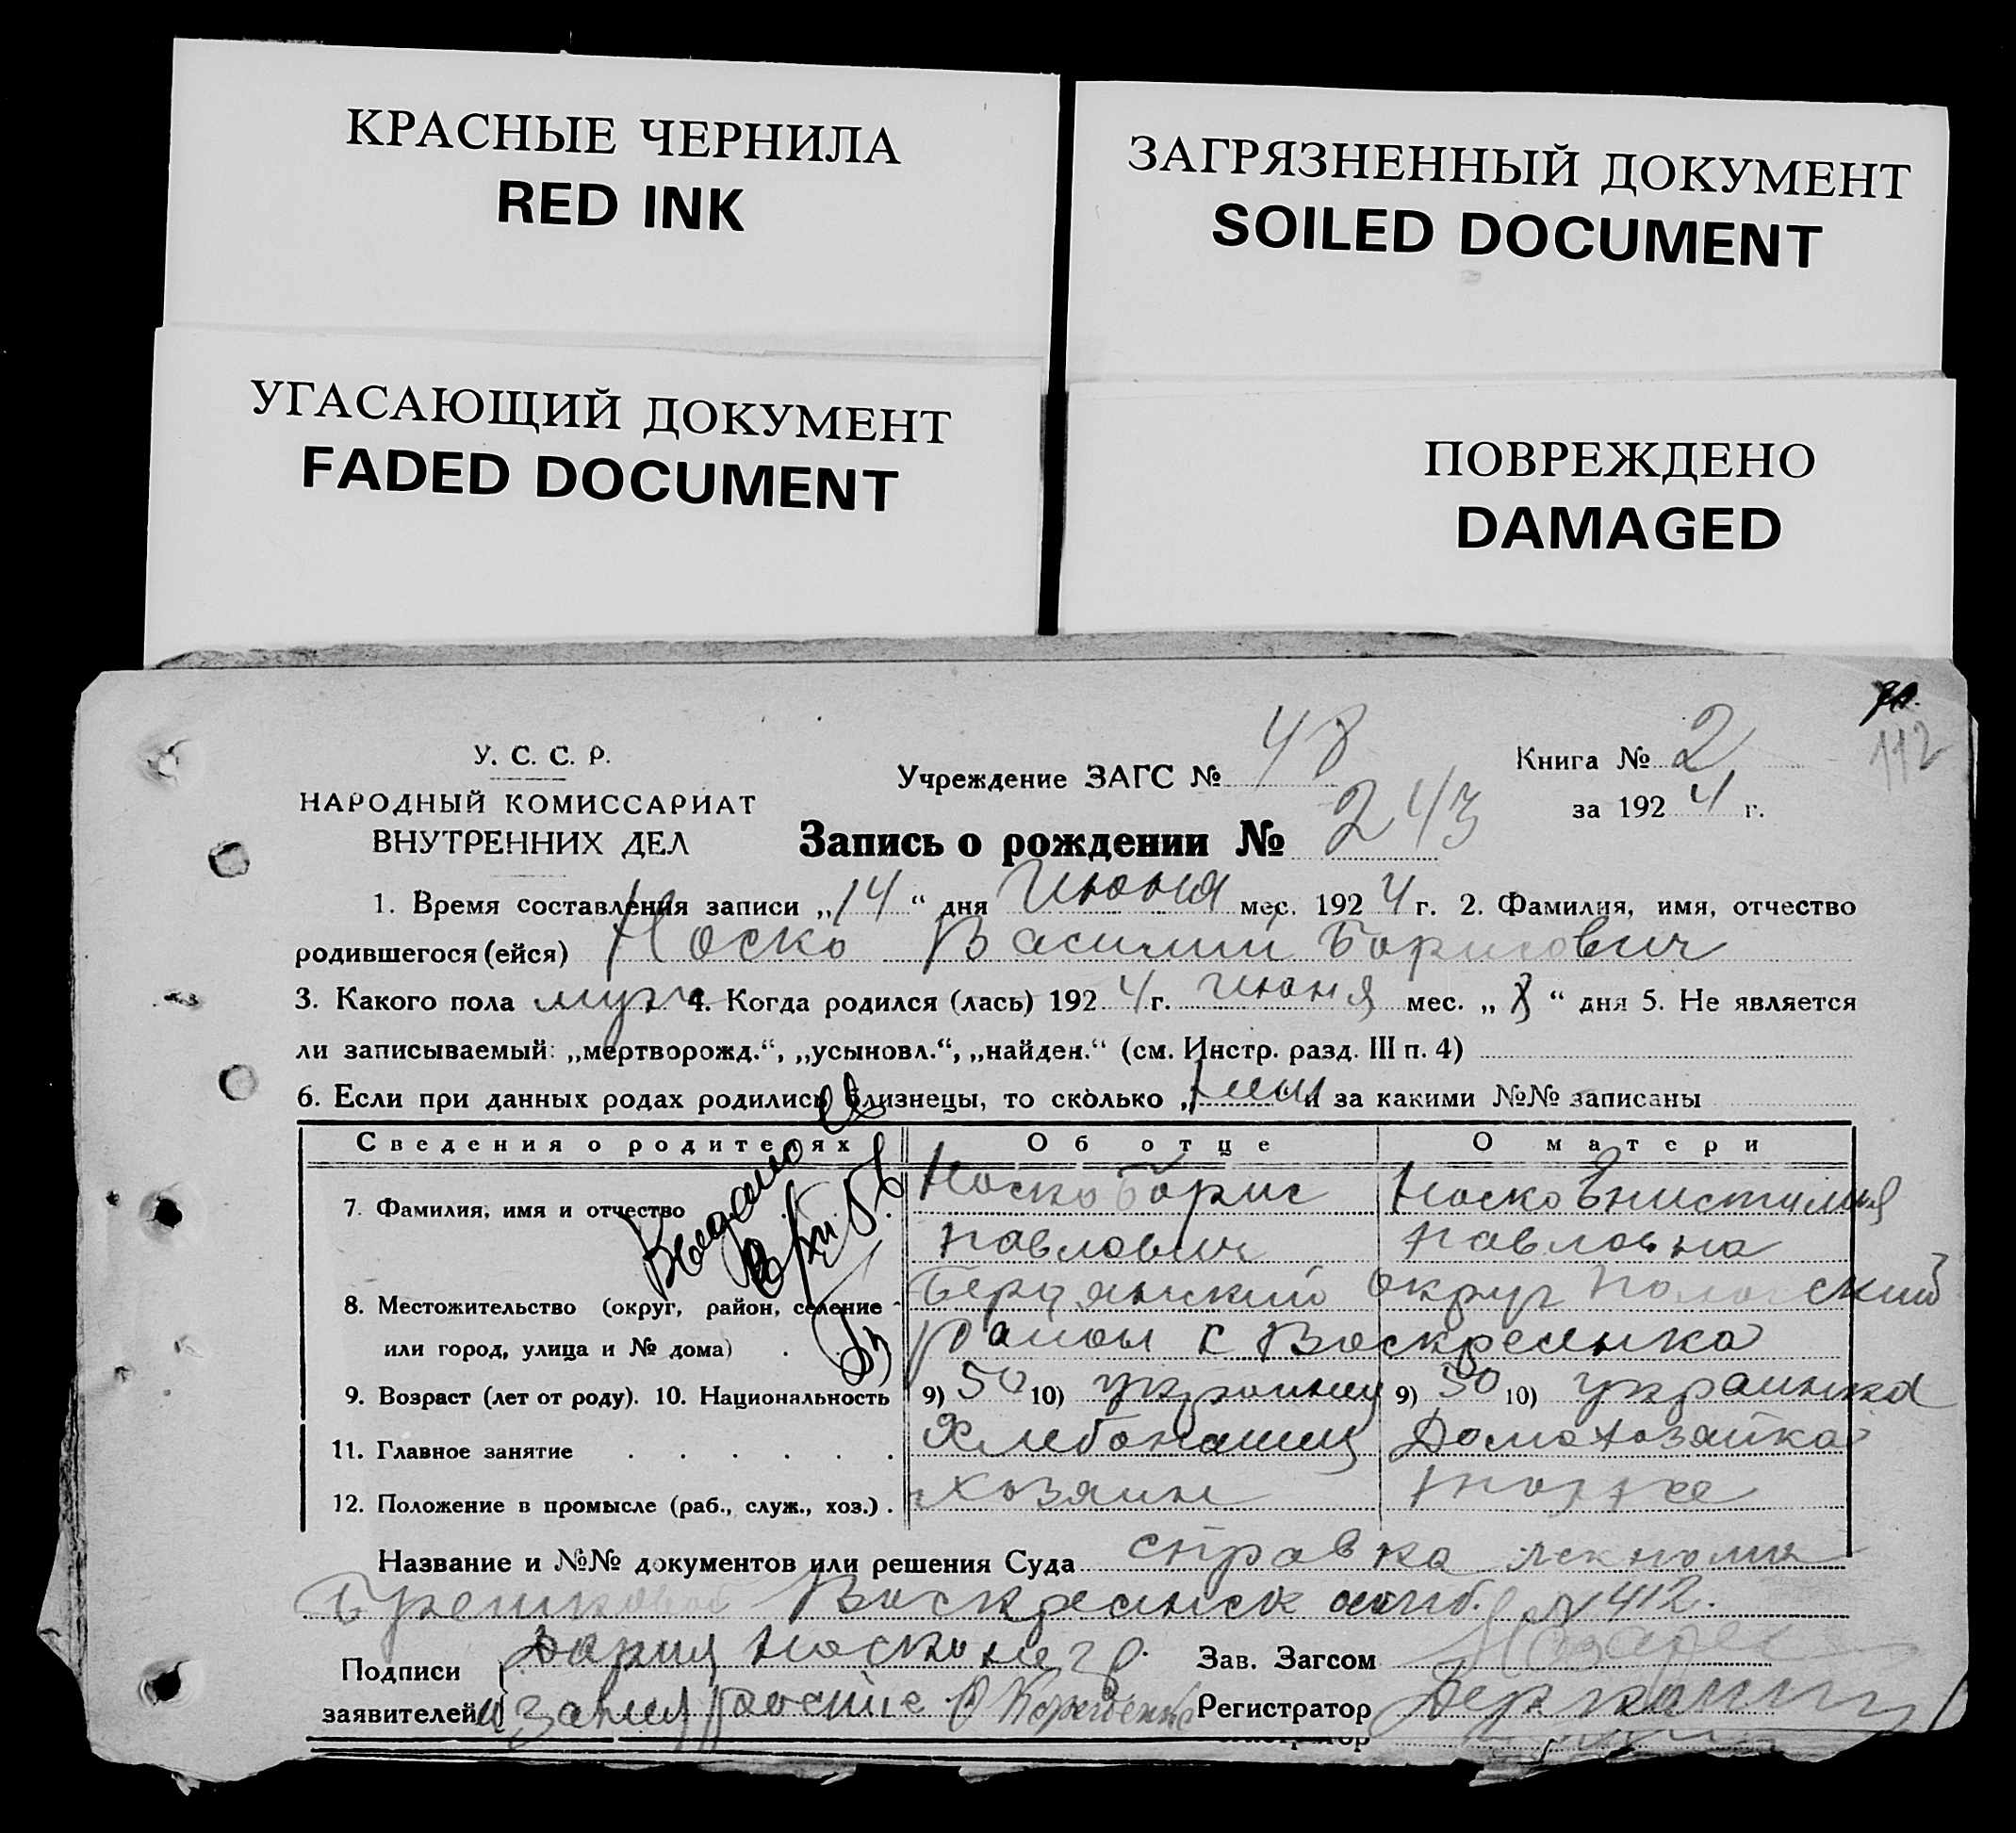 КРАСНЫЕ ЧЕРНИЛА
RED INK
ЗАГРЯЗНЕННЫЙ ДОКУМЕНТ
SOILED DOCUMENT
УГАСАЮЩИЙ ДОКУМЕНТ
FADED DOCUMENT
ПОВРЕЖДЕНО
DAMAGED
112
У. С. С. Р.
НАРОДНЫЙ КОМИССАРИАТ
ВНУТРЕННИХ ДЕЛ
Учреждение ЗАГС № 48
Книга № 2
за 1924 г.
Запись о рождении № 243
1. Время составления записи „14“ дня Июня мес. 1924 г. 2. Фамилия, имя, отчество
родившегося (ейся) Носко Василий Борисович
3. Какого пола муж 4. Когда родился (лась) 1924 г. Июня мес. „ “ дня 5. Не является
ли записываемый: „мертворожд.“, „усыновл.“, „найден.“ (см. Инстр. разд. III п. 4)
6. Если при данных родах родились близнецы, то сколько „ и за какими №№ записаны
Сведения о родителях Об отце О матери
7. Фамилия, имя и отчество Носко Борис Носко
Павлович Павловна
8. Местожительство (округ, район, селение Бердянский округ Пологский
или город, улица и № дома) район с Воскресенка
9. Возраст (лет от роду). 10. Национальность 9) 50 10) украинец 9) 30 10) украинка
11. Главное занятие Хлебопашец Домохозяйка
12. Положение в промысле (раб., служ., хоз.) хозяин тоже
Название и №№ документов или решения Суда справка
Воскресенск N 412.
Подписи Дария Носко негр.
заявителей
Зав. Загсом
Регистратор